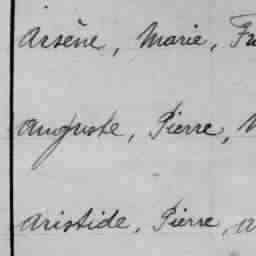 Arsène, Marie,
Auguste, Pierre,
Aristide, Pierre,